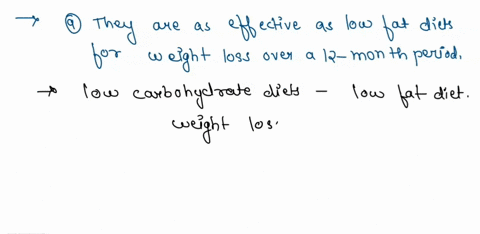 → ⓐ They are as effective as low fat diets
for weight loss over a 12-month period.
→ low carbohydrate diets - low fat diet.
weight los.